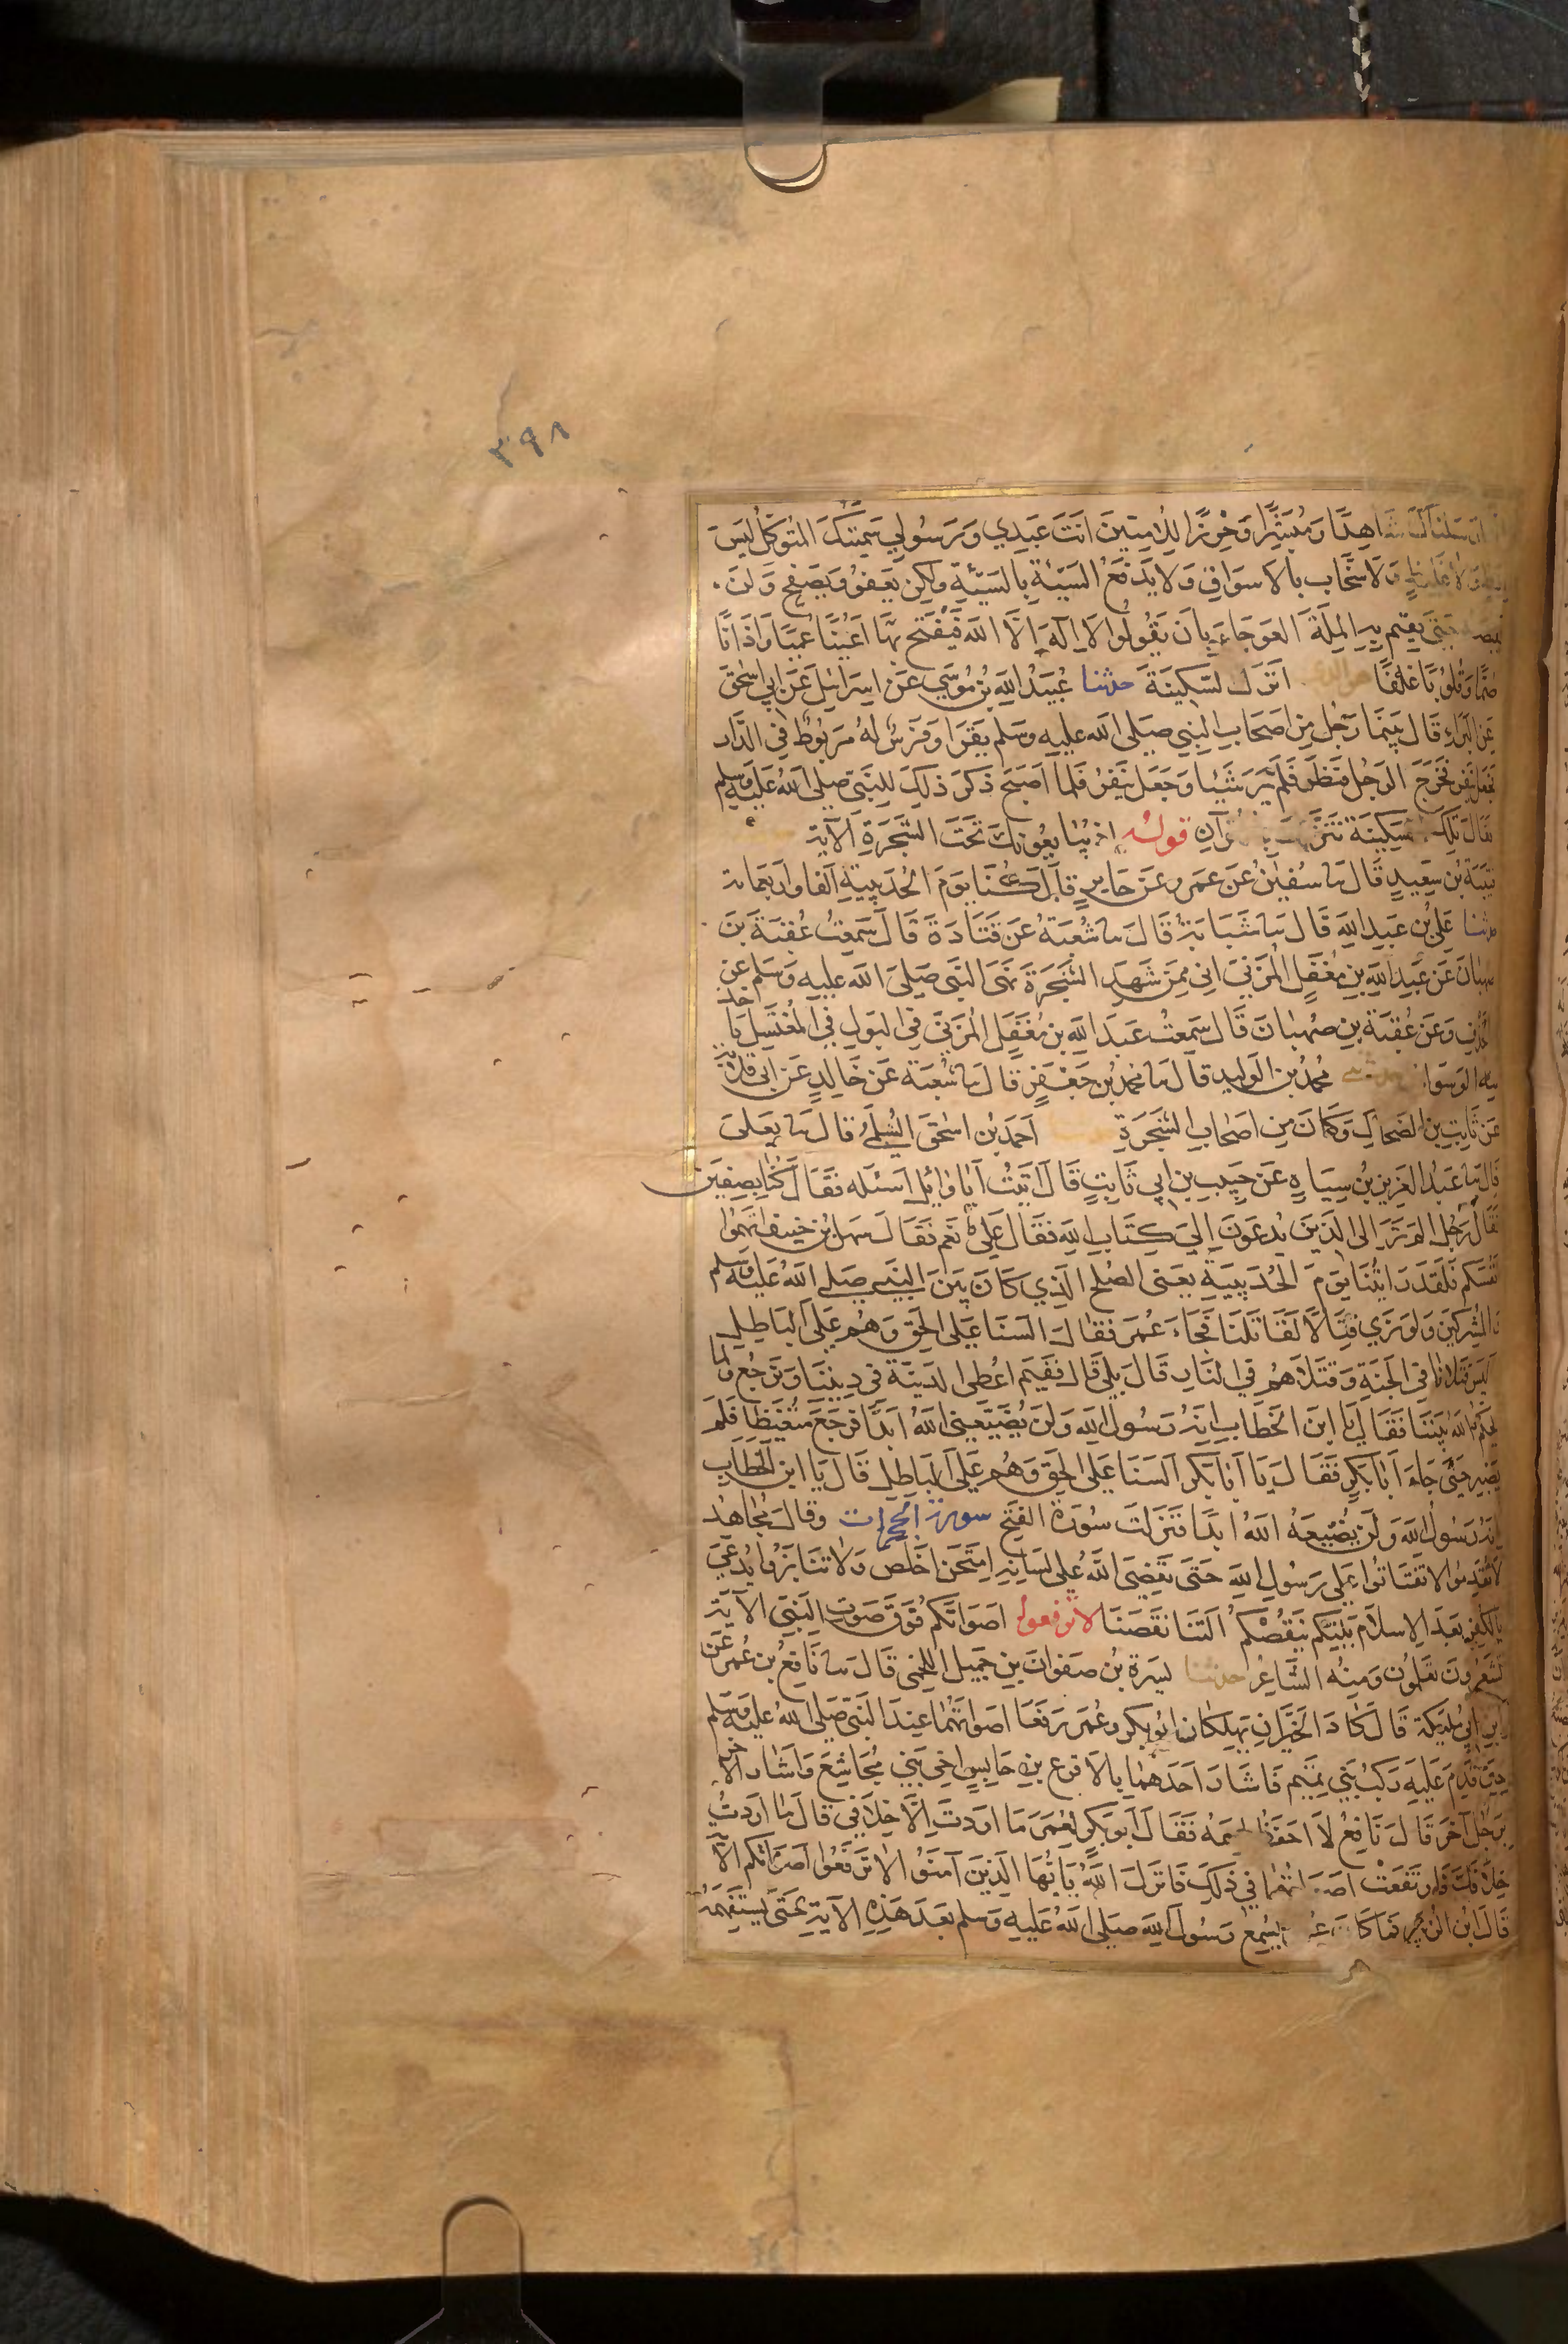 ٣٩٨
ارسلناك شاهدا ومبشرا وحرزا للاميين انت عبدي ورسولي سميتك المتوكل ليس
ولا غليظ ولا سخاب بالاسواق ولا يدفع السيئة بالسيئة ولكن يعفو ويصفح ولن
حتى يقيم به الملة العوجاء بان يقولوا لا اله الا الله فيفتح بها اعينا عميا واذانا
صما وقلوبا غلفا هو الذي انزل السكينة حدثنا عبيد الله بن موسى عن اسرائيل عن ابي اسحق
عن البراء قال بينما رجل من اصحاب النبي صلى الله عليه وسلم يقرا وفرس له مربوط في الدار
فجعل ينفر فخرج الرجل فنظر فلم ير شيئا وجعل ينفر فلما اصبح ذكر ذلك للنبي صلى الله عليه وسلم
فقال تلك السكينة تنزلت بالقرآن قوله اذ يبايعونك تحت الشجرة الآية
قتيبة بن سعيد قال نا سفين عن عمرو عن جابر قال كنا يوم الحديبية الفا واربعمائة
حدثنا علي بن عبد الله قال نا شبابة قال نا شعبة عن قتادة قال سمعت عقبة بن
صهبان عن عبد الله بن مغفل المزني اني ممن شهد الشجرة نهى النبي صلى الله عليه وسلم عن
الخذف وعن عقبة بن صهبان قال سمعت عبد الله بن مغفل المزني في البول في المغتسل ياخذ
منه الوسواس حدثني محمد بن الوليد قال نا محمد بن جعفر قال نا شعبة عن خالد عن ابي قلابة
عن ثابت بن الضحاك وكان من اصحاب الشجرة احمد بن اسحق السلمي قال نا يعلى
قال نا عبد العزيز بن سياه عن حبيب بن ابي ثابت قال اتيت ابا وائل اسئله فقال كنا بصفين
فقال رجل الم تر الى الذين يدعون الى كتاب الله فقال علي نعم فقال سهل بن حنيف اتهموا
انفسكم فلقد رايتنا يوم الحديبية يعني الصلح الذي كان بين النبي صلى الله عليه وسلم
والمشركين ولو نرى قتالا لقاتلنا فجاء عمر فقال السنا على الحق وهم على الباطل
اليس قتلانا في الجنة وقتلاهم في النار قال بلى قال ففيم اعطى الدنية في ديننا ونرجع ولما
يحكم الله بيننا فقال يا ابن الخطاب اني رسول الله ولن يضيعني الله ابدا فرجع متغيظا فلم
يصبر حتى جاء ابا بكر فقال يا ابا بكر السنا على الحق وهم على الباطل قال يا ابن الخطاب
انه رسول الله ولن يضيعه الله ابدا فنزلت سورة الفتح سورة الحجرات وقال مجاهد
لا تقدموا لا تفتاتوا على رسول الله حتى يقضي الله على لسانه امتحن اخلص ولا تنابزوا يدعى
بالكفر بعد الاسلام يلتكم ينقصكم التنا نقصنا لا ترفعوا اصواتكم فوق صوت النبي الآية
تشعرون تعلمون ومنه الشاعر حدثنا يسرة بن صفوان بن جميل اللخمي قال نا نافع بن عمر عن
ابن ابي مليكة قال كاد الخيران يهلكان ابو بكر وعمر رفعا اصواتهما عند النبي صلى الله عليه وسلم
حين قدم عليه ركب بني تميم فاشار احدهما بالاقرع بن حابس اخي بني مجاشع واشار الآخر
برجل آخر قال نافع لا احفظ اسمه فقال ابو بكر لعمر ما اردت الا خلافي قال ما اردت
خلافك فارتفعت اصواتهما في ذلك فانزل الله يا ايها الذين آمنوا لا ترفعوا اصواتكم الآ
قال ابن الزبير فما كان عمر يسمع رسول الله صلى الله عليه وسلم بعد هذه الآية حتى يستفهمه